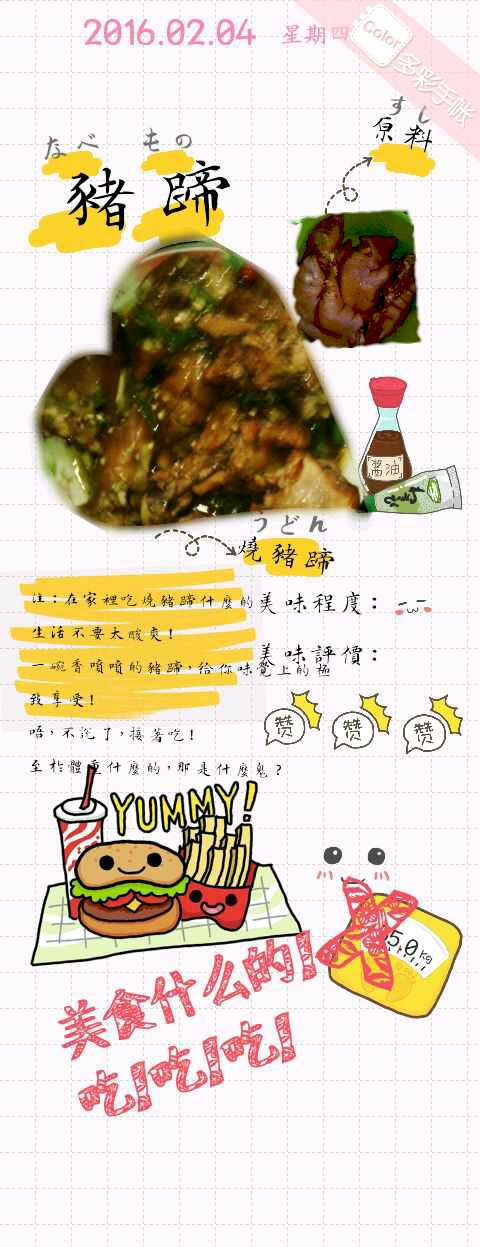 2016.02.04 星期四
Color
多彩手帐
すし
原料
なべ もの
豬蹄
酱油
うどん
燒豬蹄
注：在家裡吃燒豬蹄什麼的
生活不要太酸爽！
一碗香噴噴的豬蹄，給你味覺上的極
致享受！
唔，不說了，接著吃！
至於體重什麼的，那是什麼鬼？
美味程度：
美味評價：
赞 赞 赞
YUMMY!
5.0kg
美食什么的!
吃!吃!吃!